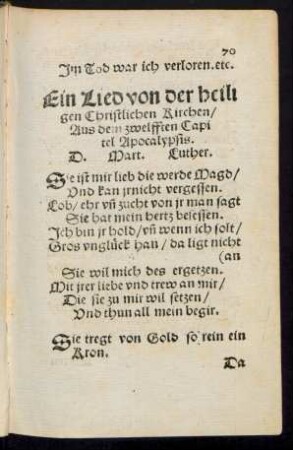 70
Im Tod war ich verloren.etc.
Ein Lied von der heili
gen Christlichen Kirchen/
Aus dem zwelfften Capi
tel Apocalypsis.
D. Mart. Luther.
Sie ist mir lieb die werde Magd/
Vnd kan jrnicht vergessen.
Lob/ ehr vñ zucht von jr man sagt
Sie hat mein hertz besessen.
Ich bin jr hold/ vñ wenn ich solt/
Gros vnglück han/ da ligt nicht
(an
Sie wil mich des ergetzen.
Mit jrer liebe vnd trew an mir/
Die sie zu mir wil setzen/
Vnd thun all mein begir.
Sie tregt von Gold so rein ein
Kron.
Da